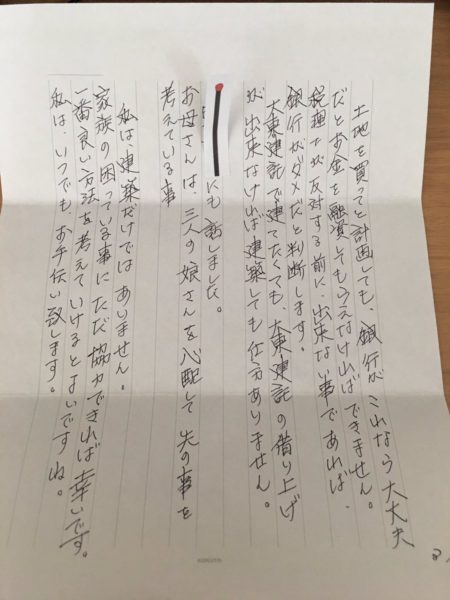 土地を買ってと計画しても、銀行がこれなら大丈夫
だとお金を融資してもらえなければできません。
税理士が反対する前に、出来ない事であれば、
銀行がダメだと判断します。
大東建託で建てたくても、大東建託の借り上げ
が出来なければ建築しても仕方ありません。
にも話しました。
お母さんは三人の娘さんを心配して先の事を
考えている事
私は、建築だけではありません。
家族の困っている事にただ協力できれば幸いです。
一番良い方法を考えていけるとよいですね。
私は、いつでもお手伝い致します。